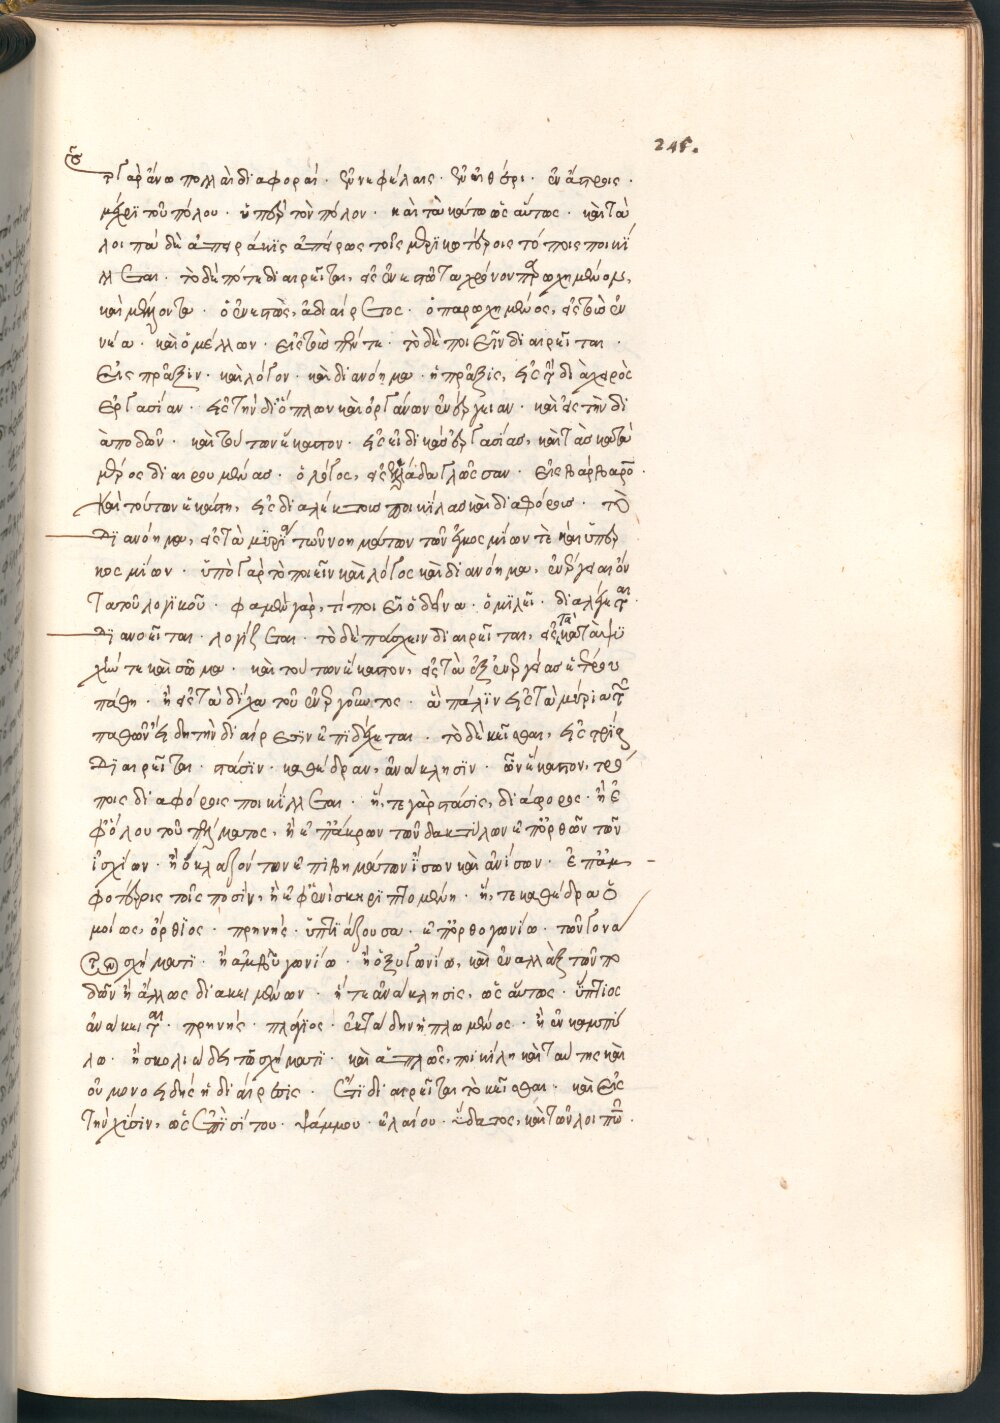 245.
τ γὰρ ἄνω πολλαὶ διαφοραί · ἐν νεφέλαις · ἐν αἰθέρι · ἐν ἄστροις ·
μέχρι τοῦ πόλου · ὑπὲρ τὸν πόλον · καὶ τὰ κάτω ὡς αὕτως · καὶ τὰ
λοιπὰ δὲ ἀπεράκις ἀπείρως τοῖς μερικωτέροις τόποις ποικί
λλεται · τὸ δὲ πότε διαιρεῖται, εἰς ἐνεστῶτα χρόνον παρωχημένον,
καὶ μέλλοντα · ὁ ἐνεστὼς, ἀδιαίρετος · ὁ παρωχημένος, εἰς τὸ ἐν
νέα · καὶ ὁ μέλλων · εἰς τὸ πέντε · τὸ δὲ ποιεῖν διαιρεῖται ·
εἰς πρᾶξιν · καὶ λόγον · καὶ διανόημα · ἡ πρᾶξις, εἰς τ διὰ χειρὸς
ἐργασίαν · εἰς τὴν δι' ὅπλων καὶ ὀργάνων ἐνέργειαν · καὶ εἰς τὴν δι
ὰ ποδῶν · καὶ τούτων ἕκαστον · εἰς εἰδικὰς ἐργασίας, καὶ τὰς κατὰ
μέρος διαιρουμένας · ὁ λόγος, εἰς ἑλλάδα γλῶσσαν · εἰς βάρβαρον ·
καὶ τούτων ἑκάστη, εἰς διαλέκτους ποικίλας καὶ διαφόρους · τὸ
διανόημα, εἰς τὰ μυρία τῶν νοημάτων τῶν ἐγκοσμίων τε καὶ ὑπερ
κοσμίων · ὑπὸ γὰρ τὸ ποιεῖν καὶ λόγος καὶ διανόημα, ἐνέργειαι ὄν
τα τοῦ λογικοῦ · φαμὲν γὰρ, τί ποιεῖ ὁ δεῖνα · ὁμιλεῖ · διαλέγεται ·
διανοεῖται · λογίζεται · τὸ δὲ πάσχειν διαιρεῖται, εἰς τὰ κατὰ ψυ
χήν τε καὶ σῶμα · καὶ τούτων ἕκαστον, εἰς τὰ ἐξ ἐνεργείας ἑτέρου
πάθη · ἢ εἰς τὰ δίχα τοῦ ἐνεργοῦντος · ἃ πάλιν εἰς τὰ μύρια τῶν
παθῶν εἴδη τὴν διαίρεσιν ἐπιδέχεται · τὸ δὲ κεῖσθαι, εἰς τρία
διαιρεῖται · στάσιν · καθέδραν, ἀνάκλησιν · ὧν ἕκαστον, τρό
ποις διαφόροις ποικίλλεται · ἥ, τε γὰρ στάσις, διάφορος · ἢ ἐ
φ' ὅλου τοῦ πέλματος, ἢ ἐπ' ἄκρων τῶν δακτύλων ἐπ' ὀρθῶν τῶν
ἰσχίων · ἢ ὀκλαζόντων ἐπὶ βημάτων ἴσων καὶ ἀνίσων · ἐπ' ἀμ
φοτέροις τοῖς ποσὶν, ἢ ἐφ' ἑνὶ σκηριπτομένη · ἥ, τε καθέδρα ὁ
μοίως, ὄρθιος · πρηνής · ὑπτιάζουσα · ἐπ' ὀρθογωνίῳ · τῶν γονά
των σχήματι · ἢ ἀμβλυγωνίῳ · ἢ ὀξυγωνίῳ, καὶ ἐναλλὰξ τῶν πο
δῶν ἢ ἄλλως διακειμένων · ἥ τε ἀνάκλησις, ὡς αὕτως · ὕπτιος
ἀνάκειται · πρηνής · πλάγιος · ἐκτάδην ἡπλωμένος · ἢ ἐν καμπύ
λῳ · ἢ σκολιώδει τῷ σχήματι · καὶ ἁπλῶς, ποικίλη καὶ ταύτης καὶ
οὐ μονοειδὴς ἡ διαίρεσις · ἔτι διαιρεῖται τὸ κεῖσθαι · καὶ εἰς
τὴν χύσιν, ὡς ἐπὶ σίτου · ψάμμου · ἐλαίου · ὕδατος, καὶ τῶν λοιπῶν ·